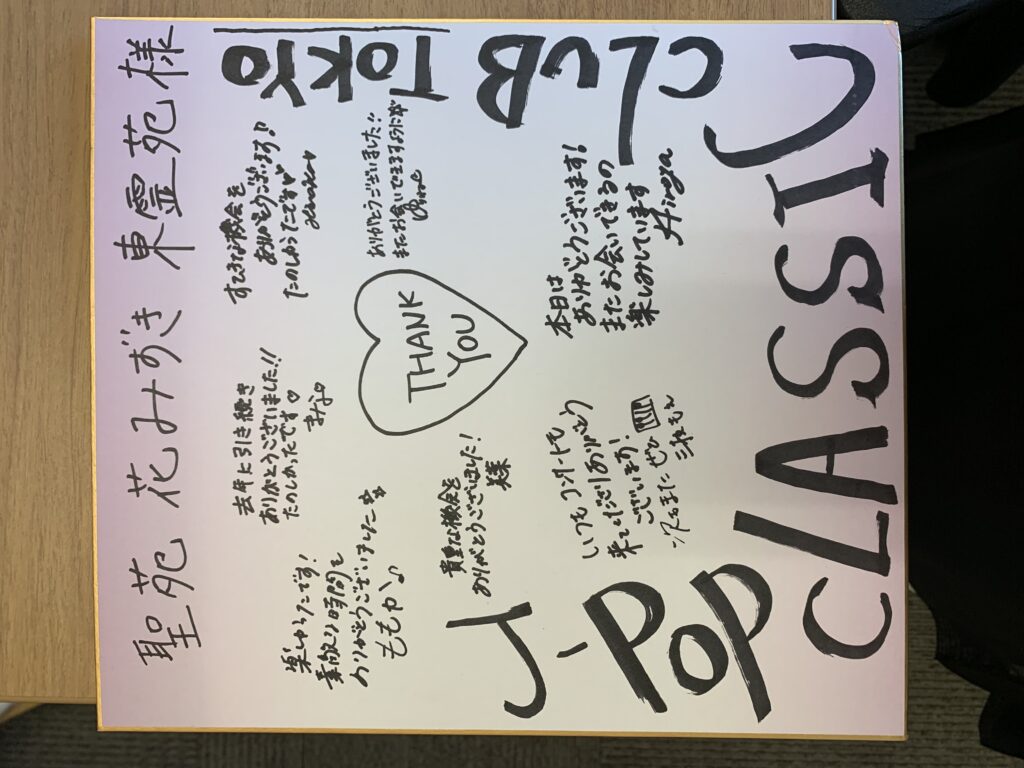 聖苑 花みずき 東霊苑様
楽しかったです!
素敵な時間を
ありがとうございました
ももか♪
去年に引き続き
ありがとうございました!!
たのしかったです♡
まな♡
すてきな機会を
ありがとうございます!
たのしかったです♥
貴重な機会を
ありがとうございました!
THANK
YOU
ありがとうございました!!
またお会いできますように
いつもコンサートにも
来てくださりありがとう
ございます!
次もまたぜひ
本日は
ありがとうございます!
またお会いできるの
楽しみしています
J-POP
CLASSIC
CLUB
TOKYO